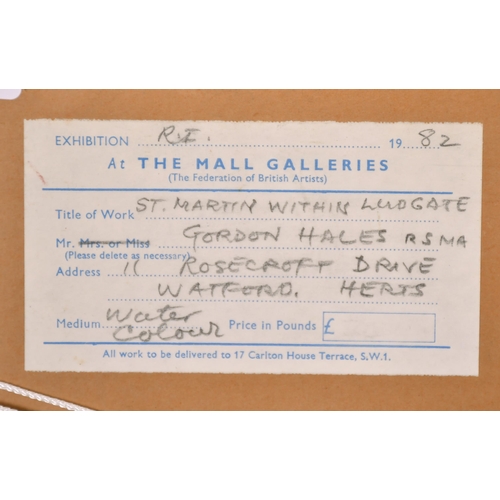 EXHIBITION R.I. 1982
At THE MALL GALLERIES
(The Federation of British Artists)
Title of Work ST. MARTIN WITHIN LUDGATE
Mr. Mrs. or Miss GORDON HALES RSMA
(Please delete as necessary)
Address 11 ROSECROFT DRIVE
WATFORD. HERTS
Medium Water Colour Price in Pounds £
All work to be delivered to 17 Carlton House Terrace, S.W.1.